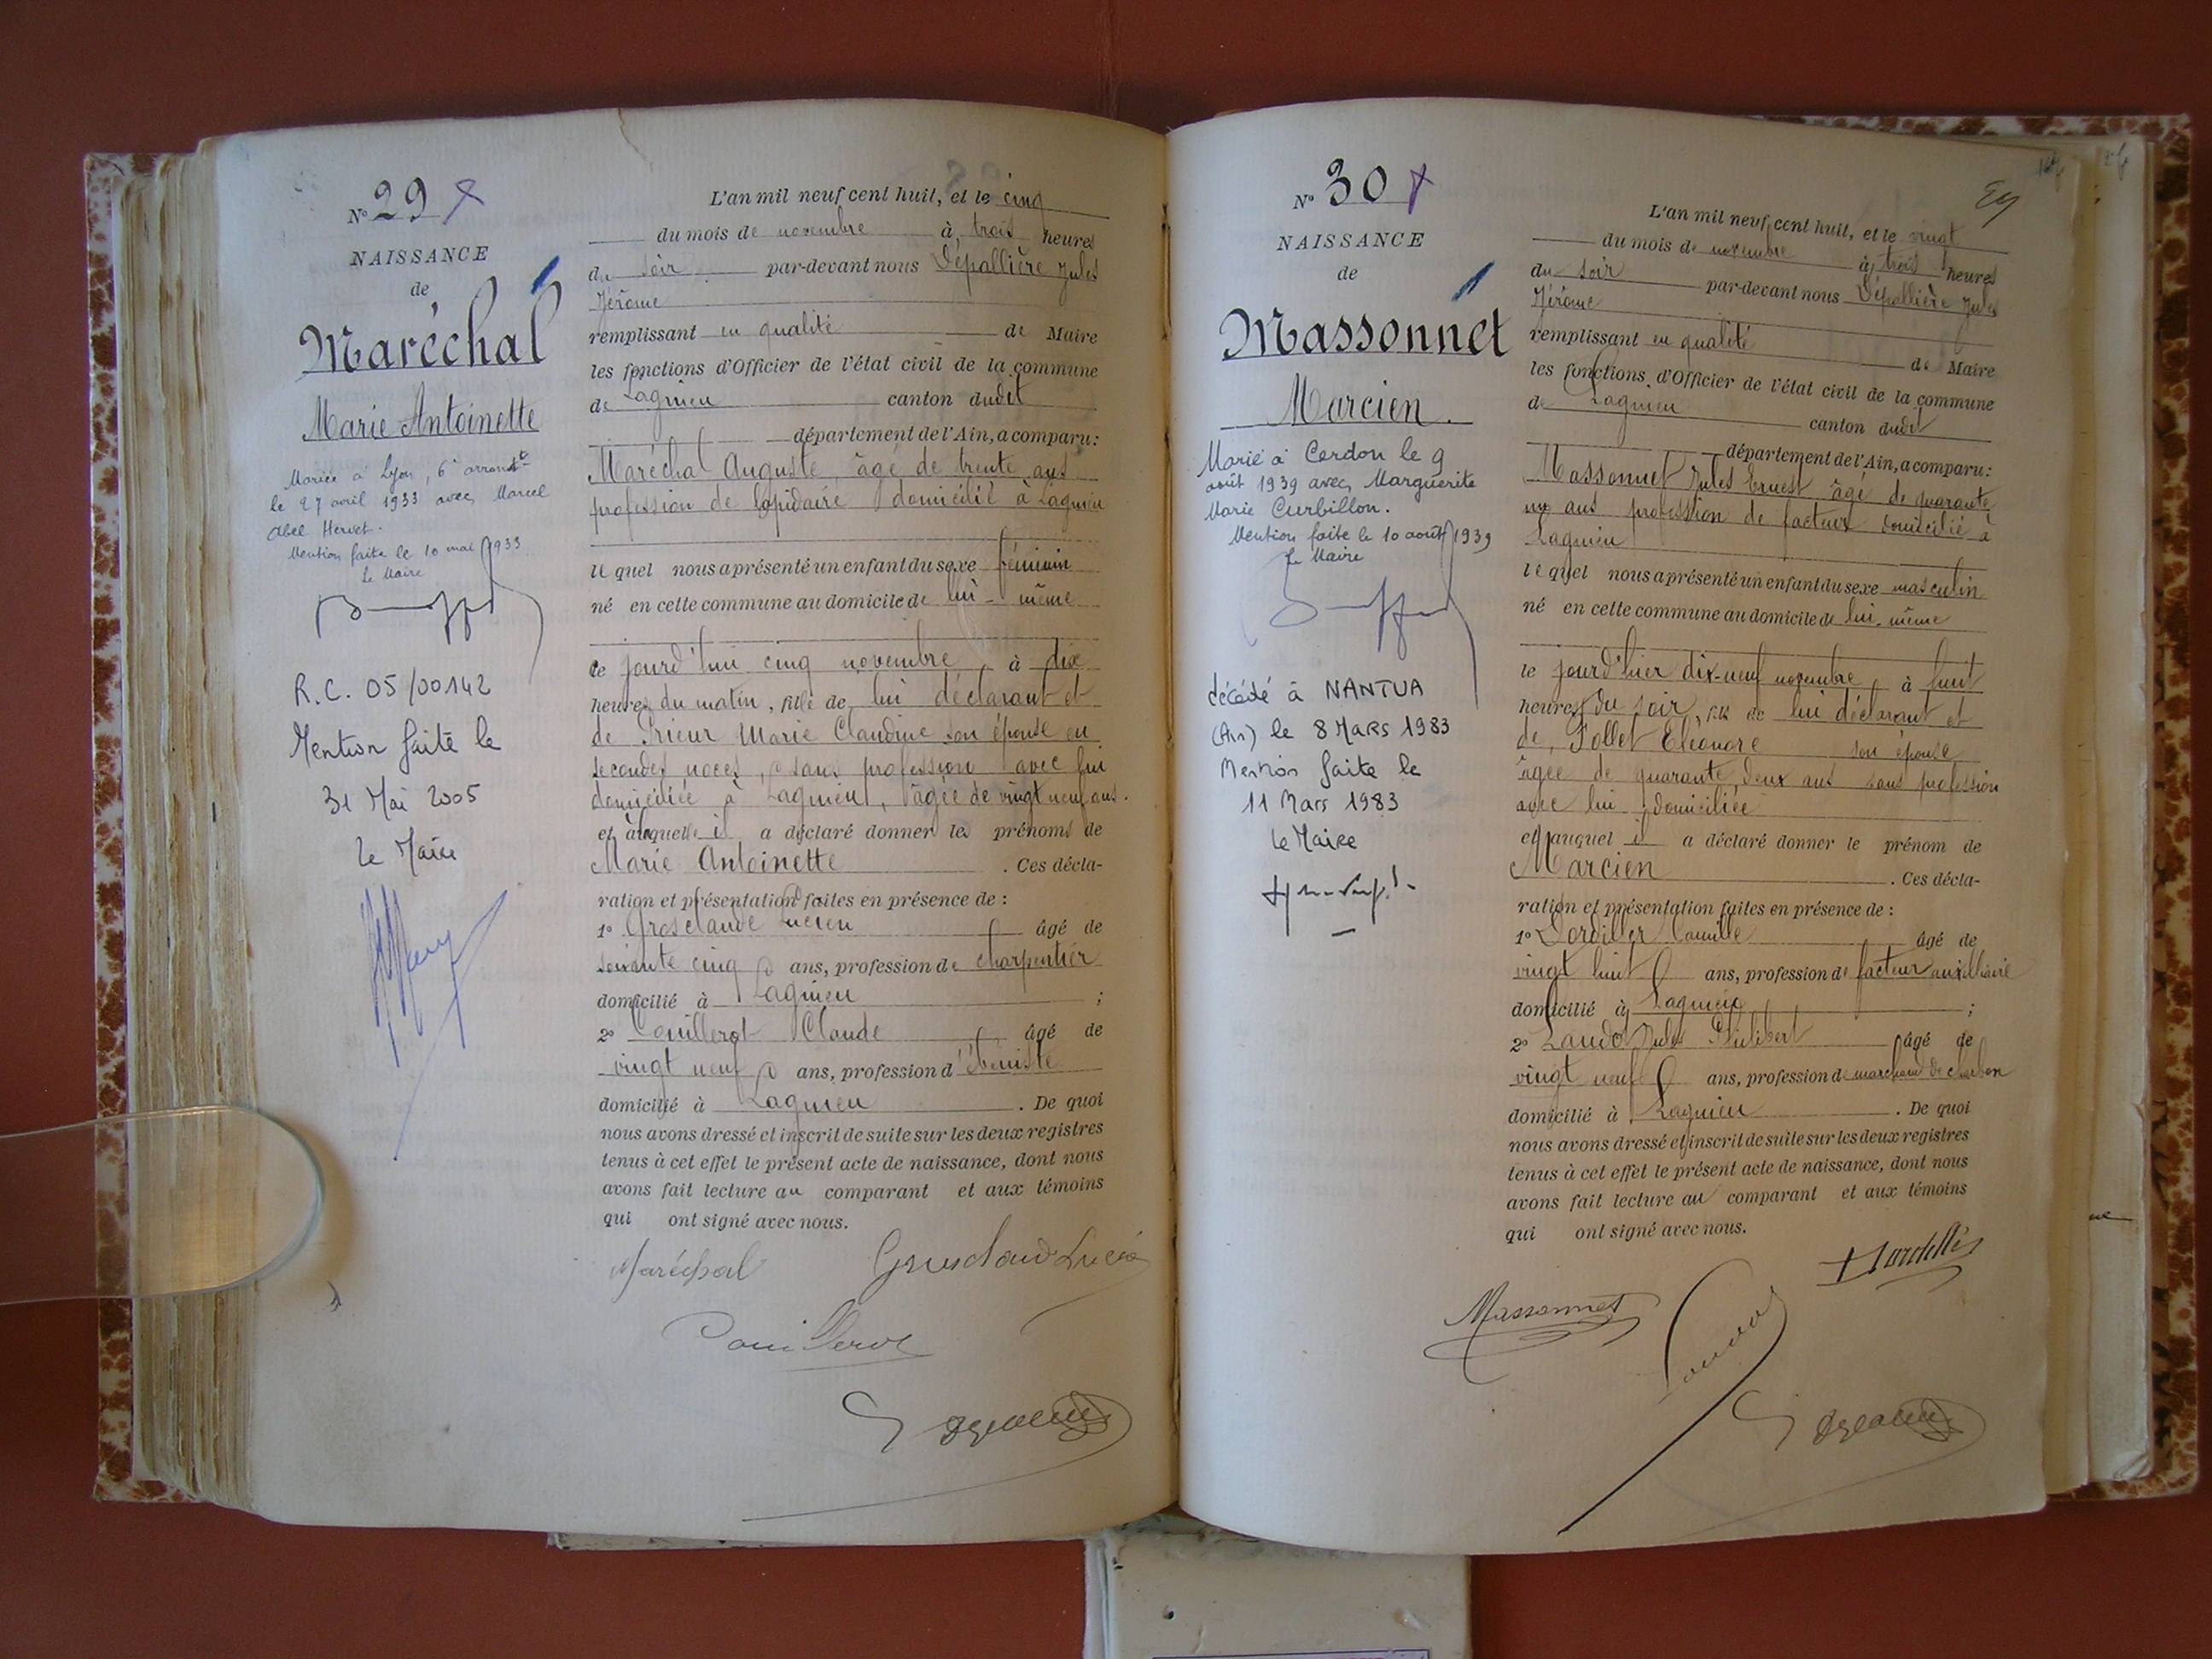 N° 29
NAISSANCE
de
Maréchal
Marie Antoinette
Mariée à Lyon, 6e arrondt
le 27 avril 1933 avec Marcel
Abel Hervet.
Mention faite le 10 mai 1933
Le Maire
R.C. 05/00142
Mention faite le
31 Mai 2005
Le Maire
L'an mil neuf cent huit, et le cinq
du mois de novembre à trois heures
du soir par-devant nous Dépallière Jules
Jérôme
remplissant en qualité de Maire
les fonctions d'Officier de l'état civil de la commune
de Lagnieu canton dudit
département de l'Ain, a comparu:
Maréchal Auguste âgé de trente ans
profession de lapidaire domicilié à Lagnieu
le quel nous a présenté un enfant du sexe féminin
né en cette commune au domicile de lui-même
ce jourd'hui cinq novembre, à dix
heures du matin, fille de lui déclarant et
de Prieur Marie Claudine son épouse en
secondes noces, sans profession avec lui
domiciliée à Lagnieu, âgée de vingt neuf ans.
et à laquelle il a déclaré donner les prénoms de
Marie Antoinette . Ces décla-
ration et présentation faites en présence de :
1° Grosclaude Lucien âgé de
soixante cinq ans, profession de charpentier
domicilié à Lagnieu ;
2° Couillerot Claude âgé de
vingt neuf ans, profession d'ébéniste
domicilié à Lagnieu . De quoi
nous avons dressé et inscrit de suite sur les deux registres
tenus à cet effet le présent acte de naissance, dont nous
avons fait lecture au comparant et aux témoins
qui ont signé avec nous.
Maréchal
N° 30
NAISSANCE
de
Massonnet
Marcien.
Marié à Cerdon le 9
août 1939 avec Marguerite
Marie Curbillon.
Mention faite le 10 août 1939
Le Maire
décédé à NANTUA
(Ain) le 8 MARS 1983
Mention faite le
11 Mars 1983
Le Maire
L'an mil neuf cent huit, et le vingt
du mois de novembre à trois heures
du soir par-devant nous Dépallière Jules
Jérôme
remplissant en qualité de Maire
les fonctions d'Officier de l'état civil de la commune
de Lagnieu canton dudit
département de l'Ain, a comparu:
Massonnet Jules Ernest âgé de quarante
un ans profession de facteur domicilié à
Lagnieu
le quel nous a présenté un enfant du sexe masculin
né en cette commune au domicile de lui-même
le jourd'hier dix-neuf novembre, à huit
heures du soir, fils de lui déclarant et
de Follet Eléonore son épouse
âgée de quarante deux ans sans profession
avec lui domiciliée
et auquel il a déclaré donner le prénom de
Marcien . Ces décla-
ration et présentation faites en présence de :
1° Camille âgé de
vingt huit ans, profession de facteur auxiliaire
domicilié à Lagnieu ;
2° Laudot Jules Philibert âgé de
vingt neuf ans, profession de marchand de charbon
domicilié à Lagnieu . De quoi
nous avons dressé et inscrit de suite sur les deux registres
tenus à cet effet le présent acte de naissance, dont nous
avons fait lecture au comparant et aux témoins
qui ont signé avec nous.
Massonnet